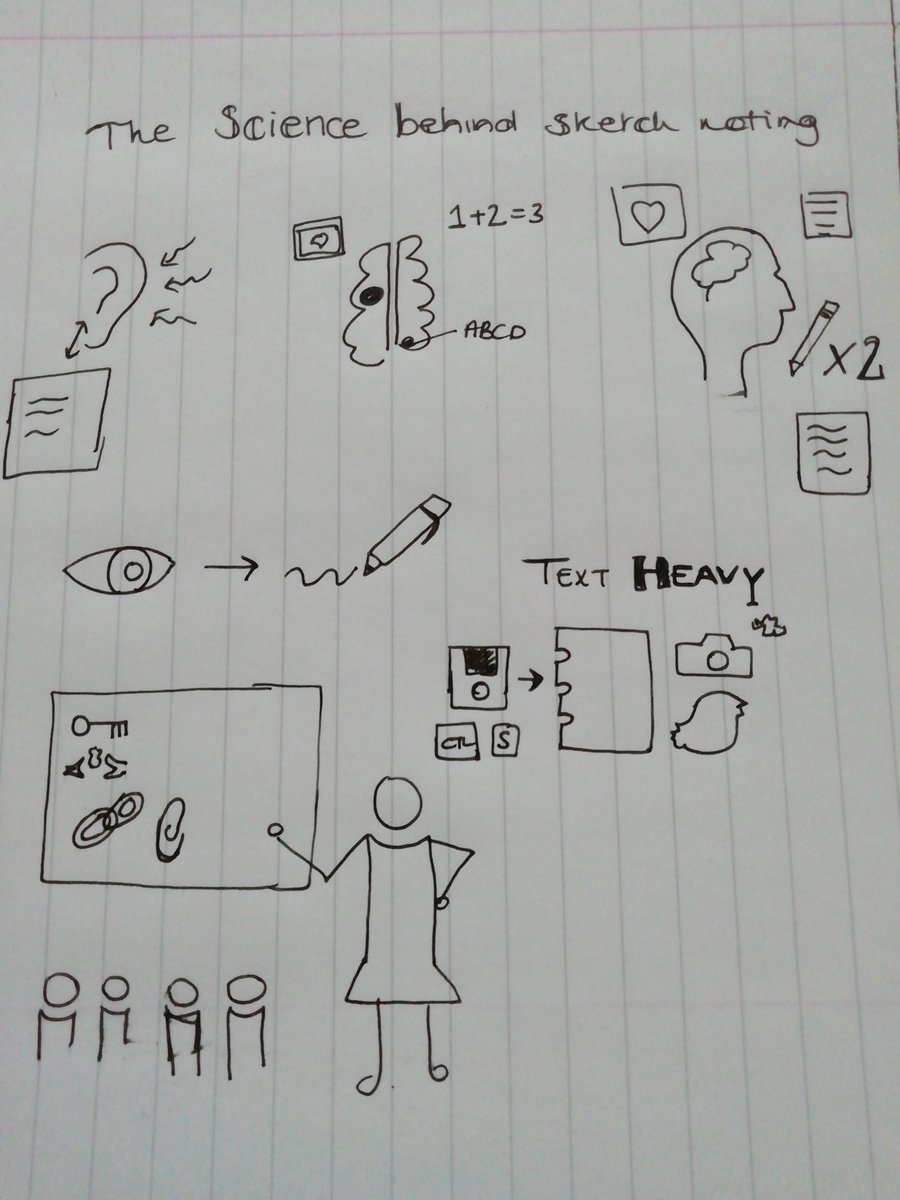 The Science behind skerch noting
1+2=3
ABCD
x2
TEXT HEAVY
CTL S